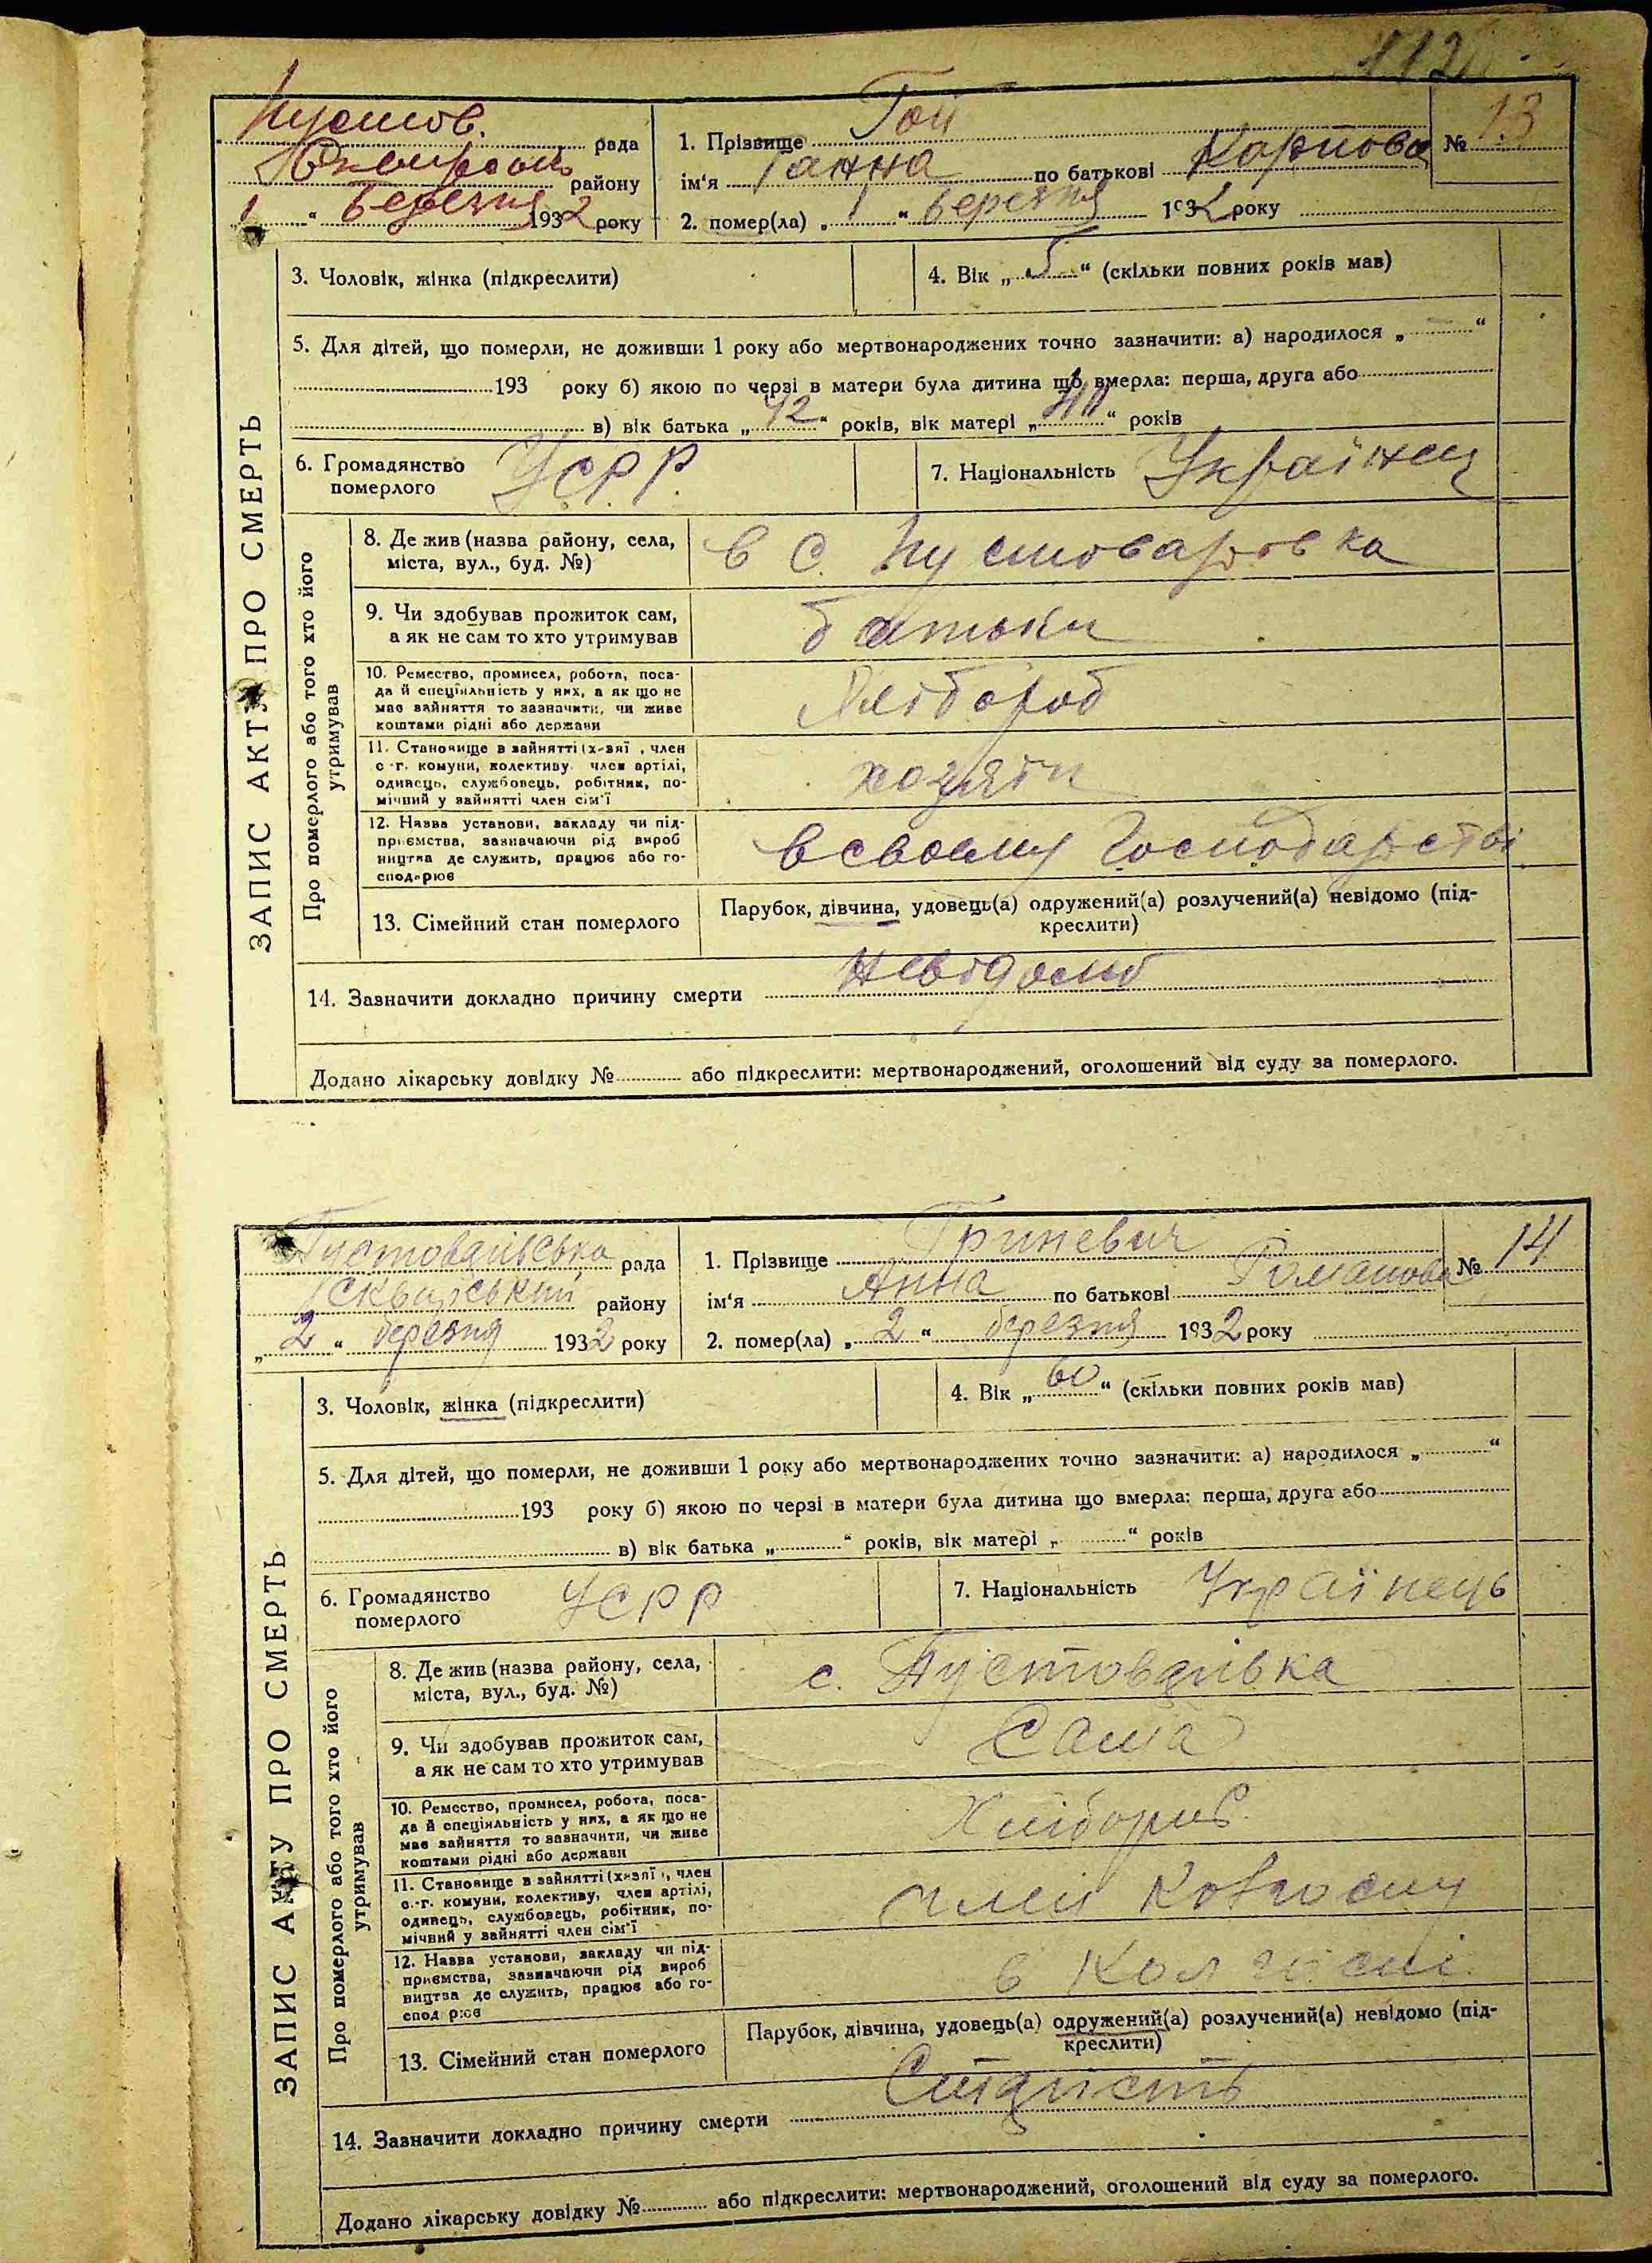 112
Пустов. рада
Сквирськ району
1 " березня 1932 року
1. Прізвище Гой
ім'я Ганна по батькові Карпова
№ 13
2. помер(ла) „ 1 " березня 1932 року
ЗАПИС АКТУ ПРО СМЕРТЬ
3. Чоловік, жінка (підкреслити)
4. Вік „ 5 " (скільки повних років мав)
5. Для дітей, що померли, не доживши 1 року або мертвонароджених точно зазначити: а) народилося „ — "
193 року б) якою по черзі в матери була дитина що вмерла: перша, друга або
в) вік батька „ 42 " років, вік матері „ 40 " років
6. Громадянство
померлого
УСРР
7. Національність Українец
Про померлого або того хто його
утримував
8. Де жив (назва району, села,
міста, вул., буд. №)
в с. Пустоваровка
9. Чи здобував прожиток сам,
а як не сам то хто утримував
батьки
10. Ремество, промисел, робота, поса-
да й спеціяльність у них, а як що не
має зайняття то зазначити, чи живе
коштами рідні або держави
Хлібороб
11. Становище в зайнятті (х-зяї , член
с.-г. комуни, колективу, член артілі,
одинець, службовець, робітник, по-
мічний у зайнятті член сім'ї
хозяїн
12. Назва установи, закладу чи під-
приємства, зазначаючи рід вироб
ництва де служить, працює або го-
сподарює
в своему Господарстві
13. Сімейний стан померлого
Парубок, дівчина, удовець(а) одружений(а) розлучений(а) невідомо (під-
креслити)
14. Зазначити докладно причину смерти невідомо
Додано лікарську довідку № або підкреслити: мертвонароджений, оголошений від суду за померлого.
Пустоварівська рада
Сквирський району
„ 2 " березня 1932 року
1. Прізвище Гриневич
ім'я Анна по батькові Романова
№ 14
2. помер(ла) „ 2 " березня 1932 року
ЗАПИС АКТУ ПРО СМЕРТЬ
3. Чоловік, жінка (підкреслити)
4. Вік „ 60 " (скільки повних років мав)
5. Для дітей, що померли, не доживши 1 року або мертвонароджених точно зазначити: а) народилося „ "
193 року б) якою по черзі в матери була дитина що вмерла: перша, друга або
в) вік батька „ " років, вік матері „ " років
6. Громадянство
померлого
УСРР
7. Національність Українець
Про померлого або того хто його
утримував
8. Де жив (назва району, села,
міста, вул., буд. №)
с. Пустоварівка
9. Чи здобував прожиток сам,
а як не сам то хто утримував
Сама
10. Ремество, промисел, робота, поса-
да й спеціяльність у них, а як що не
має зайняття то зазначити, чи живе
коштами рідні або держави
Хлібороб
11. Становище в зайнятті (х-зяї , член
с.-г. комуни, колективу, член артілі,
одинець, службовець, робітник, по-
мічний у зайнятті член сім'ї
член Колгоспу
12. Назва установи, закладу чи під-
приємства, зазначаючи рід вироб
ництва де служить, працює або го-
сподарює
в Колгоспі
13. Сімейний стан померлого
Парубок, дівчина, удовець(а) одружений(а) розлучений(а) невідомо (під-
креслити)
14. Зазначити докладно причину смерти Старість
Додано лікарську довідку № або підкреслити: мертвонароджений, оголошений від суду за померлого.